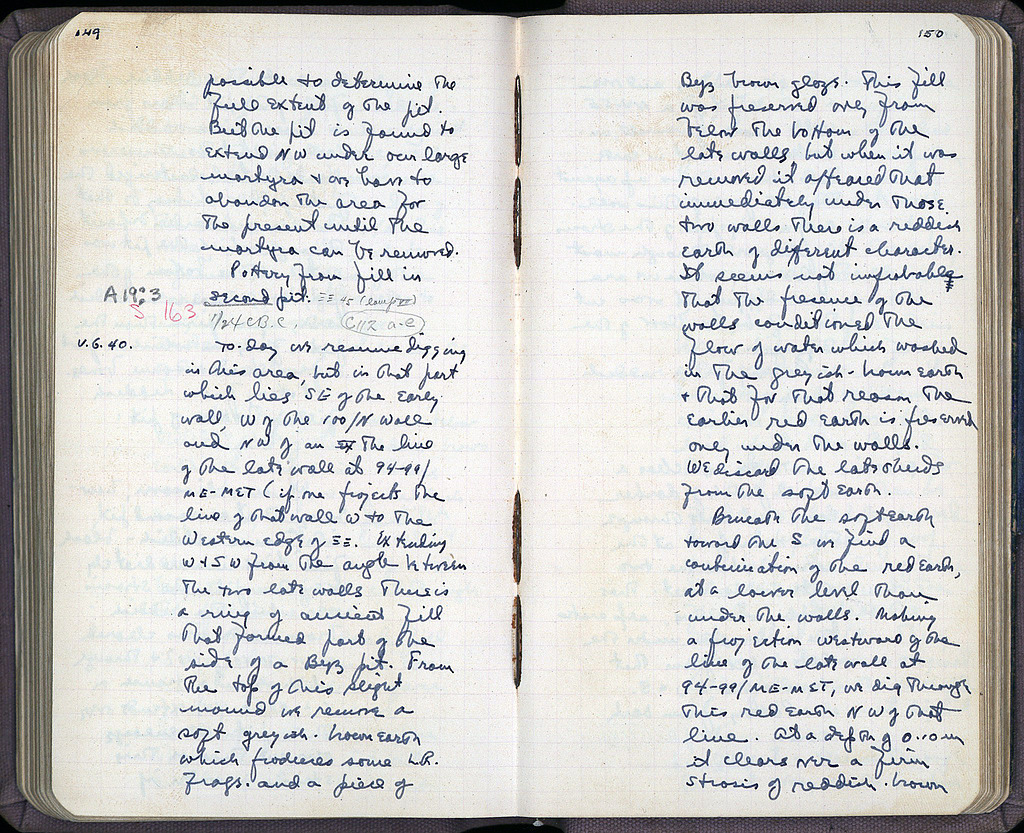 149
possible to determine the
full extent of the pit.
But the pit is found to
extend NW under our large
martyra & we have to
abandon the area for
the present until the
martyra can be removed.
Pottery from fill in
second pit. ΞΞ 45 (lamp)
A 19:3
S-163
1/24 C B.C C 112 a-c
V.6.40. To-day we resume digging
in this area, but in that part
which lies SE of the Early
wall, W of the 100/N wall
and NW of an the line
of the late wall at 94-99/
ME-MET (if one projects the
line of that wall W to the
Western edge of ΞΞ. Extending
W & SW from the angle between
the two late walls there is
a ring of ancient fill
that formed part of the
side of a Byz pit. From
the top of this slight
mound we remove a
soft greyish-brown earth
which produces some LR.
frags. and a piece of
150
Byz brown glaze. This fill
was preserved only from
below the bottom of the
late walls, but when it was
removed it appeared that
immediately under those
two walls there is a reddish
earth of different character.
It seems not improbable
that the presence of the
walls conditioned the
flow of water which washed
in the greyish-brown earth
& that for that reason the
earlier red earth is preserved
only under the walls.
We discard the late sherds
from the soft earth.
Beneath the soft earth
toward the S we find a
continuation of the red earth,
at a lower level than
under the walls. Making
a projection westward of the
line of the late wall at
94-99/ME-MET, we dig through
this red earth NW of that
line. At a depth of 0.10 m
it clears over a firm
strosis of reddish-brown